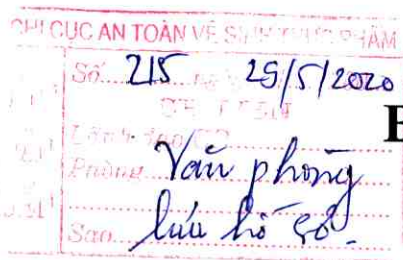 CHI CỤC AN TOÀN VỆ SINH THỰC PHẨM
Số 215 25/5/2020
B
Lãnh đạo
Phòng Văn phòng
Sao lưu hồ sơ.